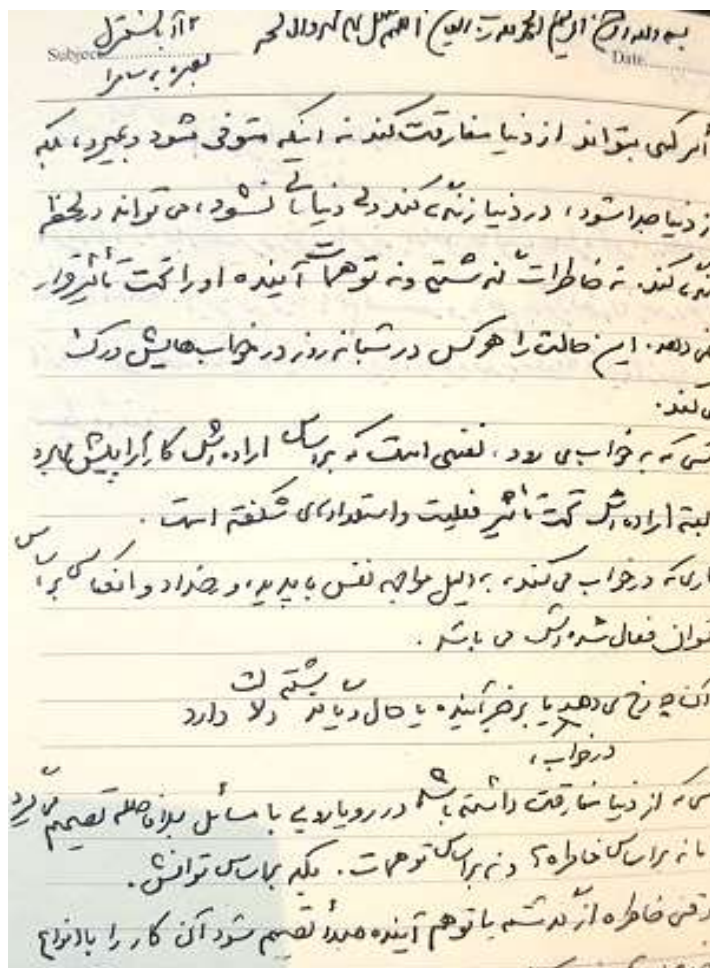 بسم الله الرحمن الرحیم الحمدلله رب العالمین اللهم صل علی محمد و آل محمد
Subject: Date
بصره به سامرا
اگر کسی بتواند از دنیا مفارقت کند نه اینکه متوفی بشود و بمیرد، بلکه
از دنیا جدا شود، در دنیا زندگی کند ولی دنیایی نشود، می تواند در لحظه
زندگی کند. نه خاطرات گذشته و نه توهمات آینده او را تحت تأثیر قرار
نمی دهد. این حالت را هرکس در شبانه روز در خواب هایش درک
می کند.
کسی که به خواب می رود، نفسی است که براساس اراده اش کار را پیش می برد
البته اراده اش تحت تأثیر فعلیت و استعدادهای شکفته است.
کاری که در خواب می کند، به دلیل مواجهه نفس با پدیده و رخداد و انعکاسی براساس
توان فعال شده اش می باشد.
آن چه رخ می دهد یا بر خبر آینده یا حال و یا گذشته دلالت دارد
در خواب،
کسی که از دنیا مفارقت داشته باشد در رویارویی با مسائل بلافاصله تصمیم می گیرد
اما نه براساس خاطره و نه براساس توهمات. بلکه براساس توانش.
وقتی خاطره از گذشته یا توهم آینده مبدأ تصمیم شود آن کار را با انواع